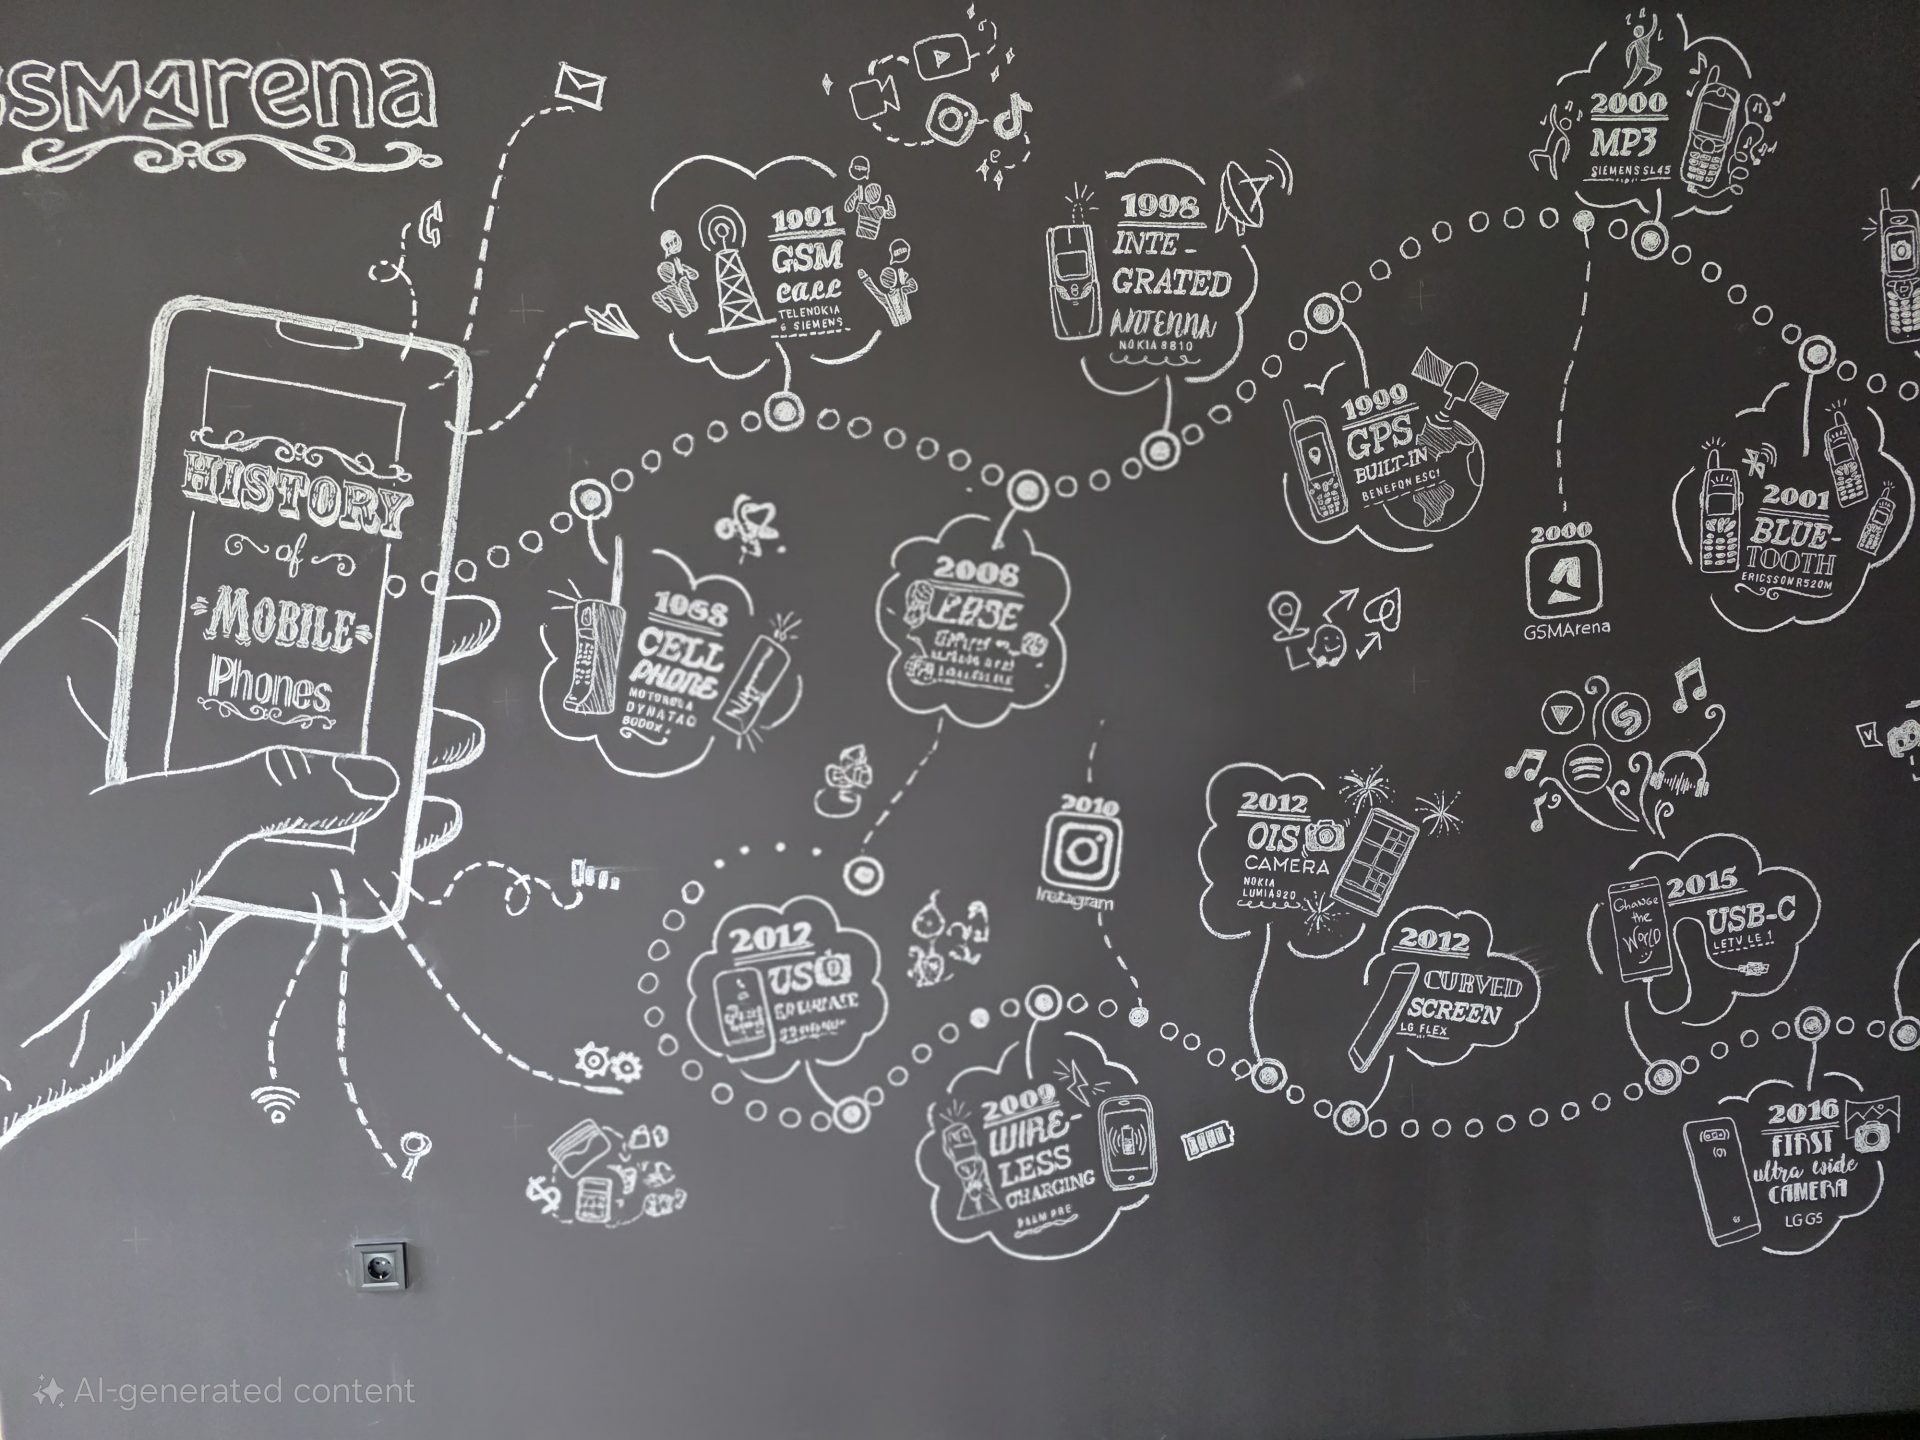 GSMArena
HISTORY
of
MOBILE
Phones
1991
GSM
call
TELENOKIA
& SIEMENS
1998
INTE-
GRATED
ANTENNA
NOKIA 8810
2000
MP3
SIEMENS SL45
1999
GPS
BUILT-IN
BENEFON ESC!
2000
GSMArena
2001
BLUE-
TOOTH
ERICSSON R520M
CELL
PHONE
MOTOROLA
DYNATAC
8000X
2008
2010
Instagram
2012
OIS
CAMERA
NOKIA
LUMIA 920
2012
CURVED
SCREEN
LG FLEX
2015
USB-C
LETV LE 1
CHANGE
the
WORLD
2012
2009
WIRE-
LESS
CHARGING
PALM PRE
2016
FIRST
ultra wide
CAMERA
LG G5
AI-generated content